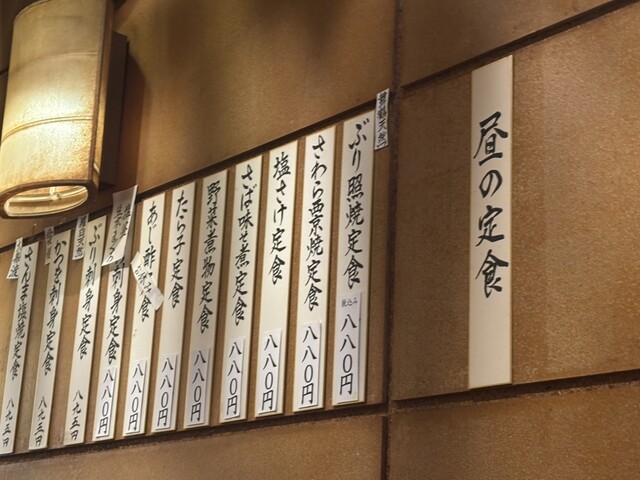 昼の定食
ぶり照焼定食 税込み 八八〇円
さわら西京焼定食 八八〇円
塩さけ定食 八八〇円
さば味そ煮定食 八八〇円
野菜煮物定食 八八〇円
たら子定食 八八〇円
あじ酢 定食 八八〇円
刺身定食 八八〇円
ぶり刺身定食 八九五円
かつを刺身定食 八九五円
さんま塩焼定食 八九五円